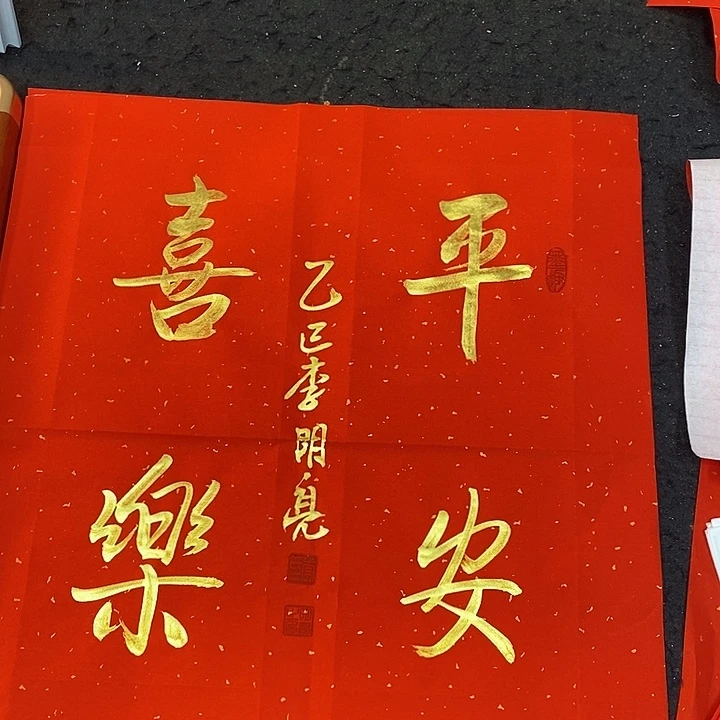 平安
乙巳李明亮
喜樂